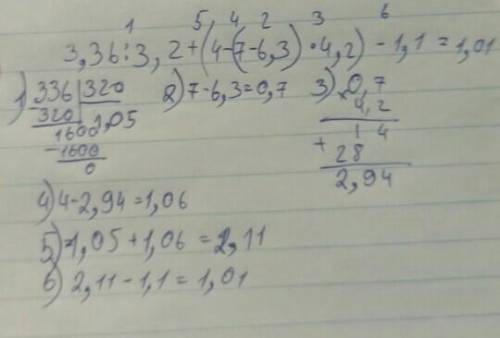 1 5 4 2 3 6
3,36:3,2+(4-(7-6,3)·4,2)-1,1=1,01
1) 336 320 2) 7-6,3=0,7 3) 0,7
320 1,05 × 4,2
1600 1 4
-1600 + 28
0 2,94
4) 4-2,94=1,06
5) 1,05+1,06=2,11
6) 2,11-1,1=1,01